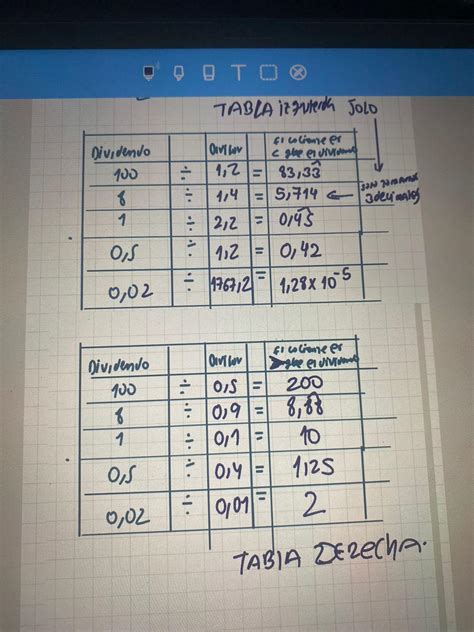 TABLA izquierda SOLO
Dividendo Divisor El cociente es < que el dividendo
100 ÷ 1,2 = 83,33
8 ÷ 1,4 = 5,714 ← 3 decimales
1 ÷ 2,2 = 0,45
0,5 ÷ 1,2 = 0,42
0,02 ÷ 1767,2 = 1,28 x 10⁻⁵
Dividendo Divisor El cociente es > que el dividendo
100 ÷ 0,5 = 200
8 ÷ 0,9 = 8,88
1 ÷ 0,1 = 10
0,5 ÷ 0,4 = 1,25
0,02 ÷ 0,01 = 2
TABLA DERECHA.